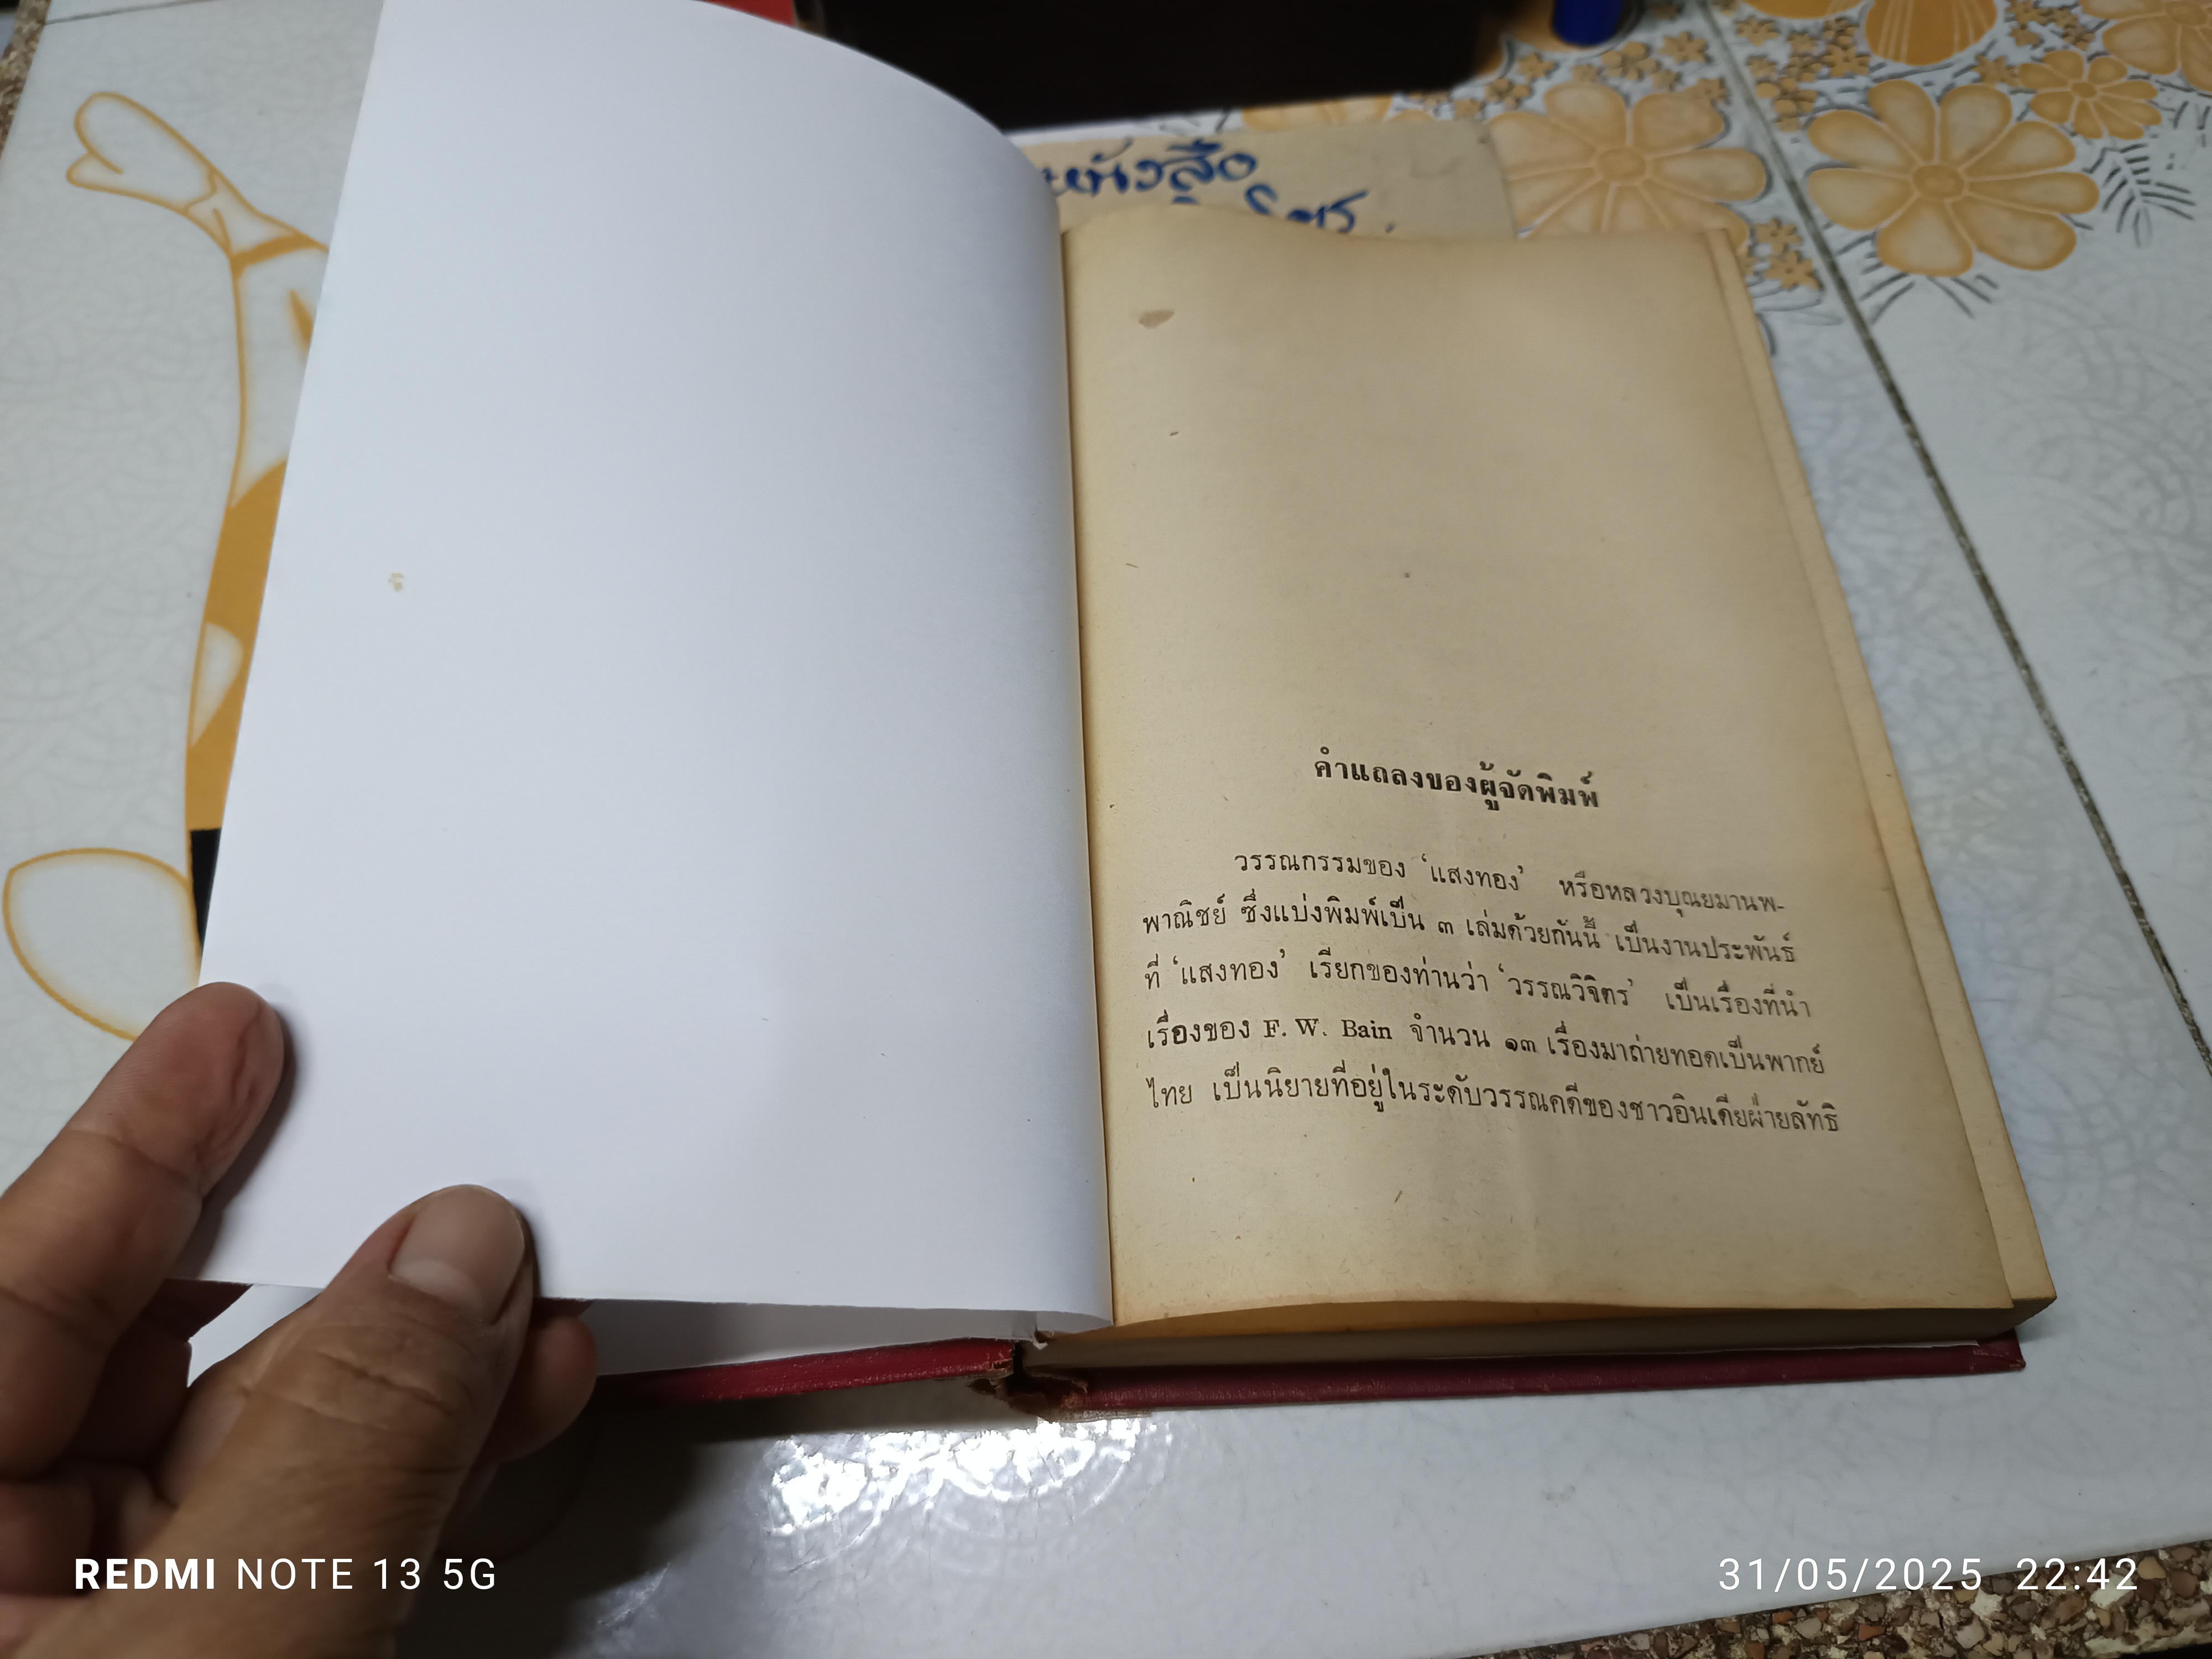 หนังสือ
โหร
คำแถลงของผู้จัดพิมพ์
วรรณกรรมของ ‘แสงทอง’ หรือหลวงบุณยมานพ-
พาณิชย์ ซึ่งแบ่งพิมพ์เป็น ๓ เล่มด้วยกันนี้ เป็นงานประพันธ์
ที่ ‘แสงทอง’ เรียกของท่านว่า ‘วรรณวิจิตร’ เป็นเรื่องที่นำ
เรื่องของ F. W. Bain จำนวน ๑๓ เรื่องมาถ่ายทอดเป็นพากย์
ไทย เป็นนิยายที่อยู่ในระดับวรรณคดีของชาวอินเดียฝ่ายลัทธิ
REDMI NOTE 13 5G
31/05/2025 22:42